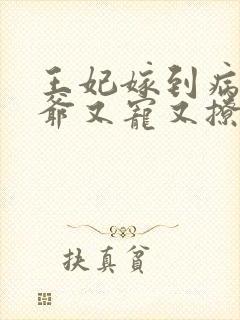 王妃嫁到病
爺又寵又撩
扶真貧